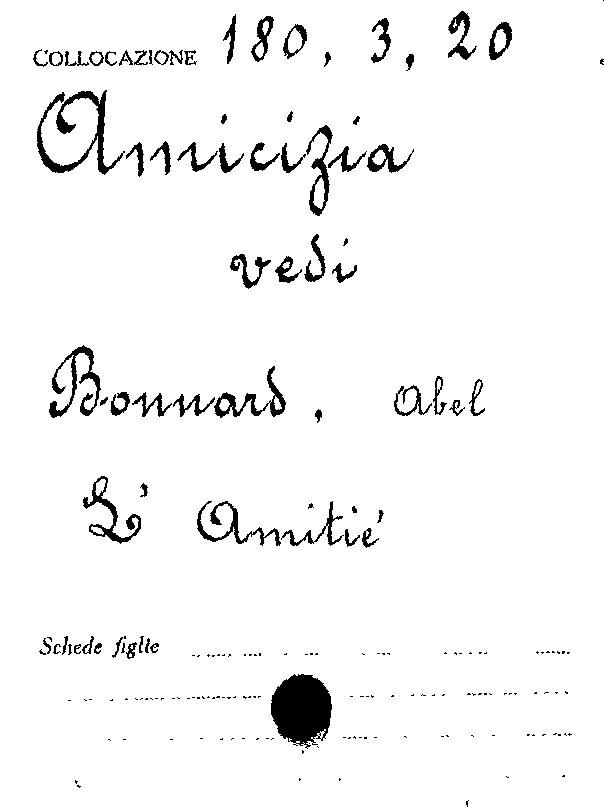 COLLOCAZIONE 180, 3, 20
Amicizia
vedi
Bonnard, Abel
L'Amitié
Schede figlie